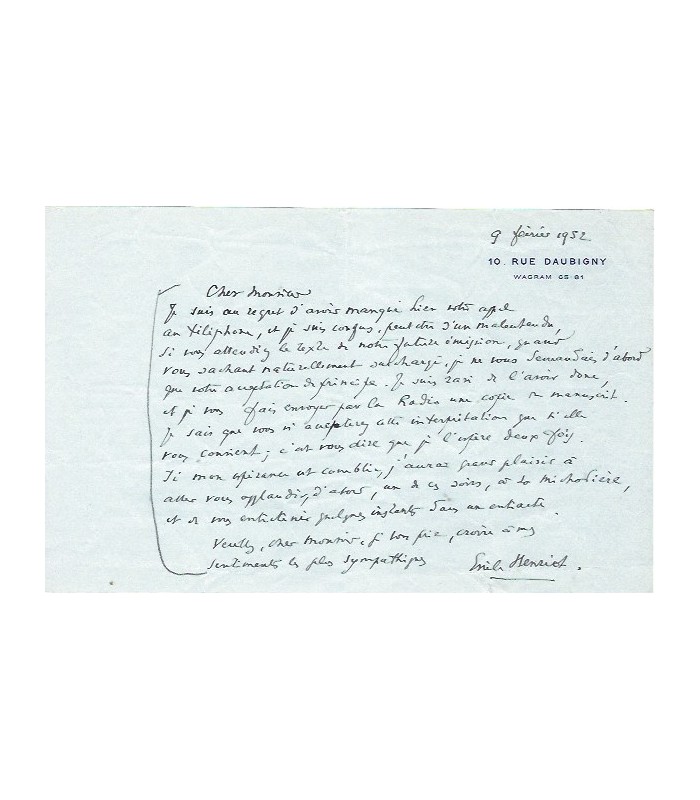 9 février 1952
10. RUE DAUBIGNY
WAGRAM 05-81
Cher Monsieur
Je suis au regret d'avoir manqué hier votre appel
au téléphone, et je suis confus, peut-être d'un malentendu,
si vous attendiez le texte de notre future émission, quand
vous sachant naturellement surchargé, je ne vous demandais d'abord
que votre acceptation de principe. Je suis ravi de l'avoir donc,
et je vous fais envoyer par la Radio une copie du manuscrit.
Je sais que vous n'accepterez cette interprétation que si elle
vous convient; c'est vous dire que je l'espère deux fois.
Si mon espérance est comblée, j'aurai grand plaisir à
aller vous applaudir, d'abord, un de ces soirs, à la Michodière,
et de vous entretenir quelques instants dans un entracte.
Veuillez, cher Monsieur, je vous prie, croire à mes
sentiments les plus sympathiques
Emile Henriot.